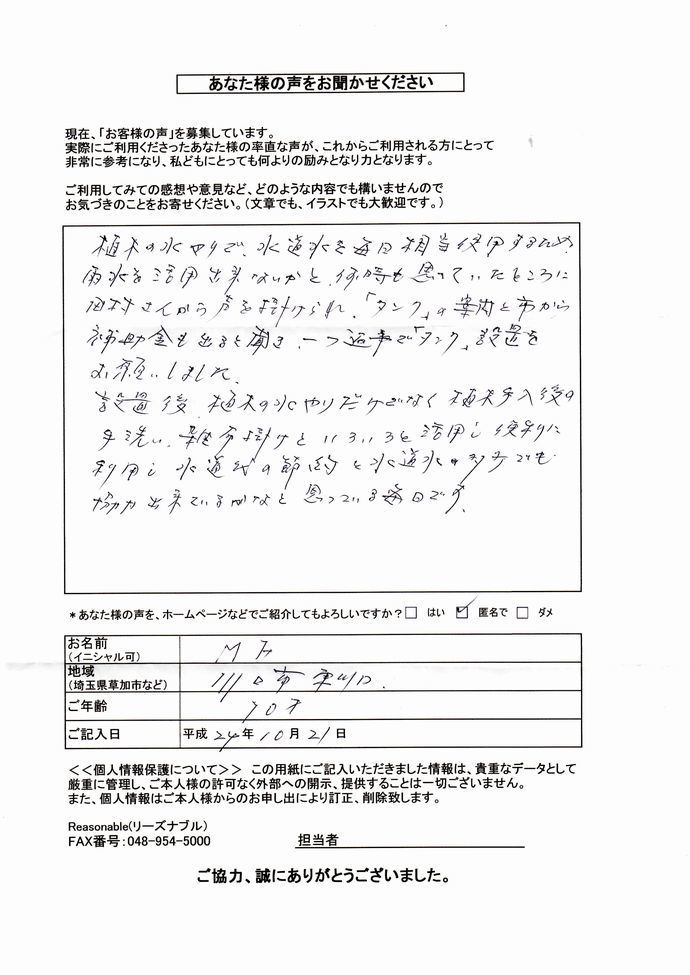 あなた様の声をお聞かせください
現在、「お客様の声」を募集しています。
実際にご利用くださったあなた様の率直な声が、これからご利用される方にとって
非常に参考になり、私どもにとっても何よりの励みとなり力となります。
ご利用してみての感想や意見など、どのような内容でも構いませんので
お気づきのことをお寄せください。(文章でも、イラストでも大歓迎です。)
植木の水やりで、水道水を毎日相当使用するため
雨水を活用出来ないかと、何時も思っていたところに
田村さんから声を掛けられ、「タンク」の案内と市から
補助金も出ると聞き、一つ返事で「タンク」設置を
お願いしました。
設置後、植木の水やりだけでなく植木手入後の
手洗い、雑布掛けといろいろと活用し便利に
利用し水道代の節約と水道水の でも
協力出来ているかなと思っている毎日です。
*あなた様の声を、ホームページなどでご紹介してもよろしいですか?□ はい ☑ 匿名で □ ダメ
お名前
(イニシャル可) M
地域
(埼玉県草加市など) 川口市東川口
ご年齢 70才
ご記入日 平成 24年 10月 21日
<<個人情報保護について>> この用紙にご記入いただきました情報は、貴重なデータとして
厳重に管理し、ご本人様の許可なく外部への開示、提供することは一切ございません。
また、個人情報はご本人様からのお申し出により訂正、削除致します。
Reasonable(リーズナブル)
FAX番号:048-954-5000 担当者
ご協力、誠にありがとうございました。